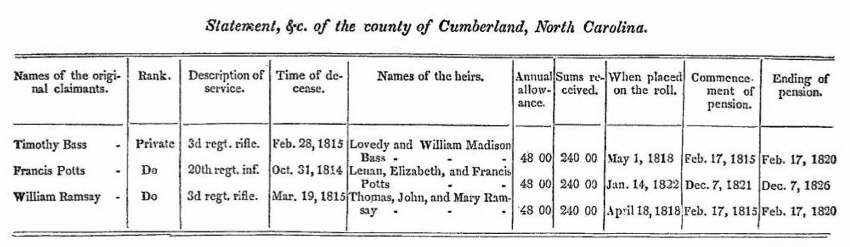 Statement, &c. of the county of Cumberland, North Carolina.
Names of the origi- Rank. Description of Time of de- Names of the heirs. Annual Sums re- When placed Commence- Ending of
nal claimants. service. cease. allow- ceived. on the roll. ment of pension.
ance. pension.
Timothy Bass - Private 3d regt. rifle. Feb. 28, 1815 Lovedy and William Madison
Bass - - 48 00 240 00 May 1, 1818 Feb. 17, 1815 Feb. 17, 1820
Francis Potts - Do 20th regt. inf. Oct. 31, 1814 Lenan, Elizabeth, and Francis
Potts - - 48 00 240 00 Jan. 14, 1822 Dec. 7, 1821 Dec. 7, 1826
William Ramsay - Do 3d regt. rifle. Mar. 19, 1815 Thomas, John, and Mary Ram-
say - - - 48 00 240 00 April 18, 1818 Feb. 17, 1815 Feb. 17, 1820